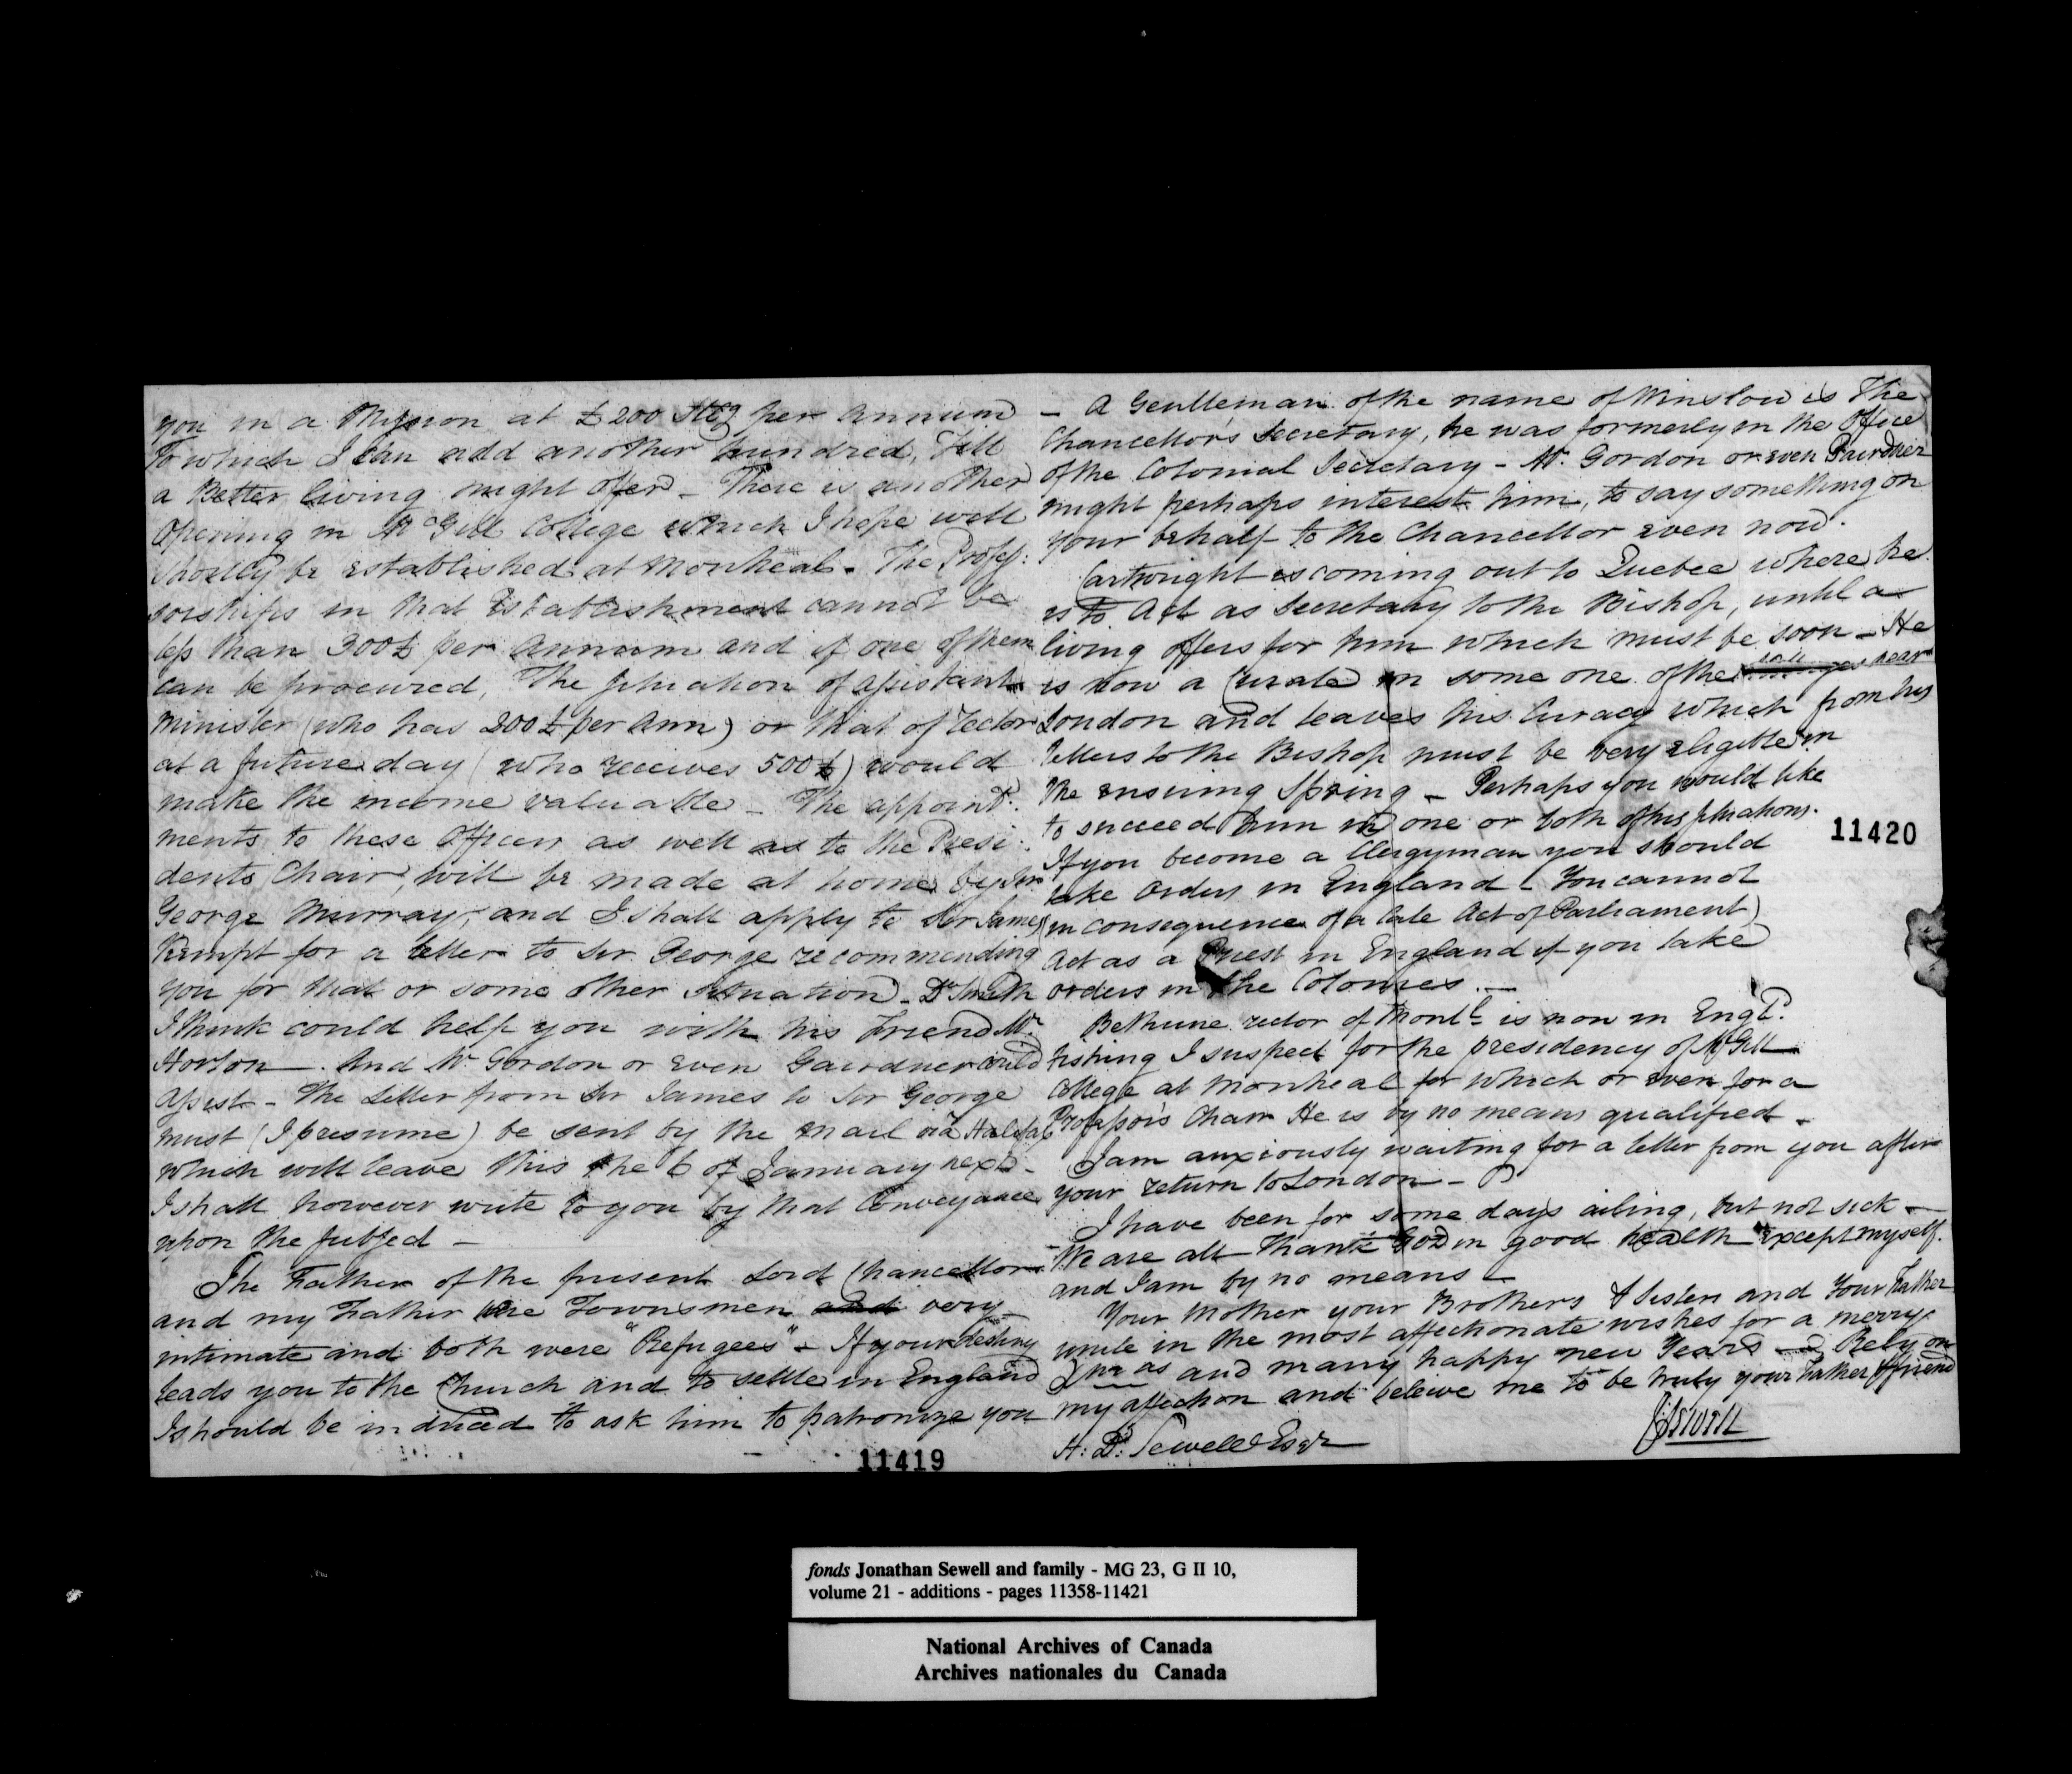 you in a Mission at £200 Stg per Annum
To which I can add another hundred, Till
a Better living might offer - There is another
Opening in McGill College which I hope will
shortly be established at Montreal. The Profes:
sorships in that Establishment cannot be
less than 300£ per Annum and if one of them
can be procured, The situation of assistant
Minister (who has 200£ per Ann) or that of rector
at a future day (who receives 500£) would
make the income valuable - The appoint:
ments to these offices as well as to the Presi:
dents Chair, will be made at home by Sir
George Murray, and I shall apply to Sir James
Kempt for a letter to Sir George recommending
you for that or some other situation - Dr Smith
I think could help you with his Friend Mr
Horton - And Mr Gordon or even Gairdner could
assist - The Letter from Sir James to Sir George
must (I presume) be sent by the mail via Halifax
which will leave this the 6 of January next -
I shall however write to you by that Conveyance
upon the subject -
The Father of the present Lord Chancellor
and my Father were Townsmen and very
intimate and both were "Refugees" - If your destiny
leads you to the Church and to settle in England
I should be induced to ask him to patronize you
11419
- A Gentleman of the name of Winslow is The
Chancellor's Secretary, he was formerly in the Office
of the Colonial Secretary - Mr. Gordon or even Gairdner
might perhaps interest him, to say something on
your behalf to the Chancellor even now.
Cartwright is coming out to Quebec where he
is to Act as Secretary to the Bishop, until a
living offers for him which must be soon - He
is now a Curate in some one of the near
London and leaves his Curacy which from his
letters to the Bishop must be very eligible in
the ensuing Spring - Perhaps you would like
to succeed him in one or both of his situations.
If you become a Clergyman you should
take Orders in England (You cannot
in consequence of a late Act of Parliament)
Act as a Priest in England if you take
orders in the Colonies. -
Bethune rector of Montl is now in Engd.
fishing I suspect for the presidency of McGill
College at Montreal for which or even for a
Professor's Chair He is by no means qualified -
I am anxiously waiting for a letter from you after
your return to London -
I have been for some days ailing, but not sick -
We are all Thank God in good health except myself.
and I am by no means -
Your Mother your Brothers & Sisters and Your Father
unite in the most affectionate wishes for a merry
Xmas and many happy new Years - Rely on
my affection and beleive me to be truly your Father & friend
H: D: Sewell Esqr
J Sewell
11420
fonds Jonathan Sewell and family - MG 23, G II 10,
volume 21 - additions - pages 11358-11421
National Archives of Canada
Archives nationales du Canada